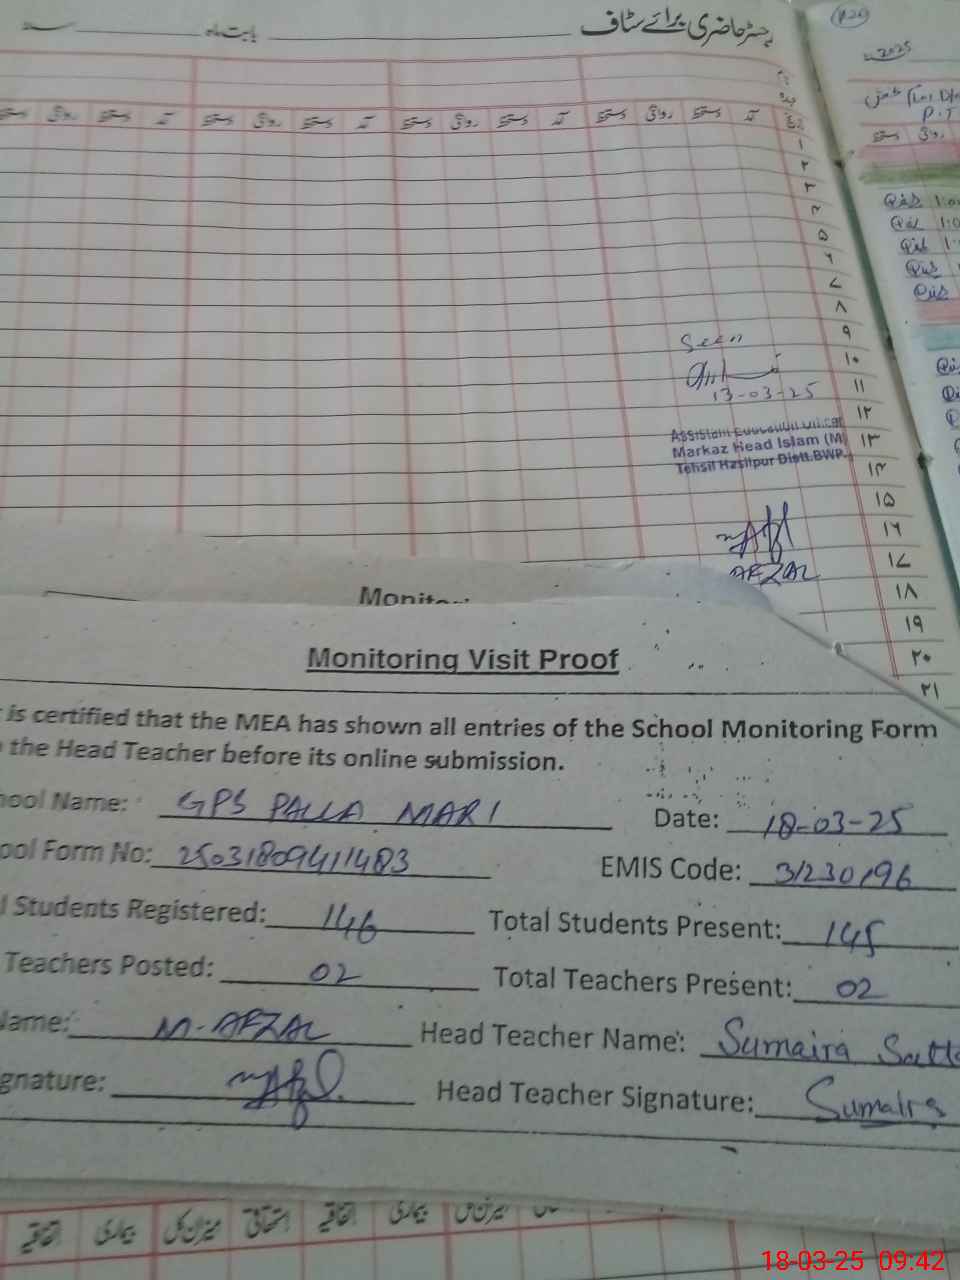 رجسٹر حاضری برائے سٹاف
بابت ماہ
2025
P.T
آمد دستخط روانگی دستخط آمد دستخط روانگی دستخط آمد دستخط روانگی دستخط آمد دستخط روانگی دستخط
۱
۲
۳
۴
۵
۶
۷
۸
۹
۱۰
۱۱
۱۲
۱۳
۱۴
۱۵
۱۶
۱۷
۱۸
۱۹
۲۰
۲۱
Seen
13-03-25
Assistant Education Officer
Markaz Head Islam (M)
Tehsil Hasilpur Distt.BWP
AFZAL
Monitori
Monitoring Visit Proof
is certified that the MEA has shown all entries of the School Monitoring Form
the Head Teacher before its online submission.
hool Name: GPS PALLA MARI Date: 18-03-25
ool Form No: 25031809411483 EMIS Code: 31230196
l Students Registered: 146 Total Students Present: 145
Teachers Posted: 02 Total Teachers Present: 02
Name: M-AFZAL Head Teacher Name: Sumaira Satt
gnature: Head Teacher Signature: Sumaira
اتفاقیہ استحقاقی میزان کل بیماری اتفاقیہ
18-03-25 09:42